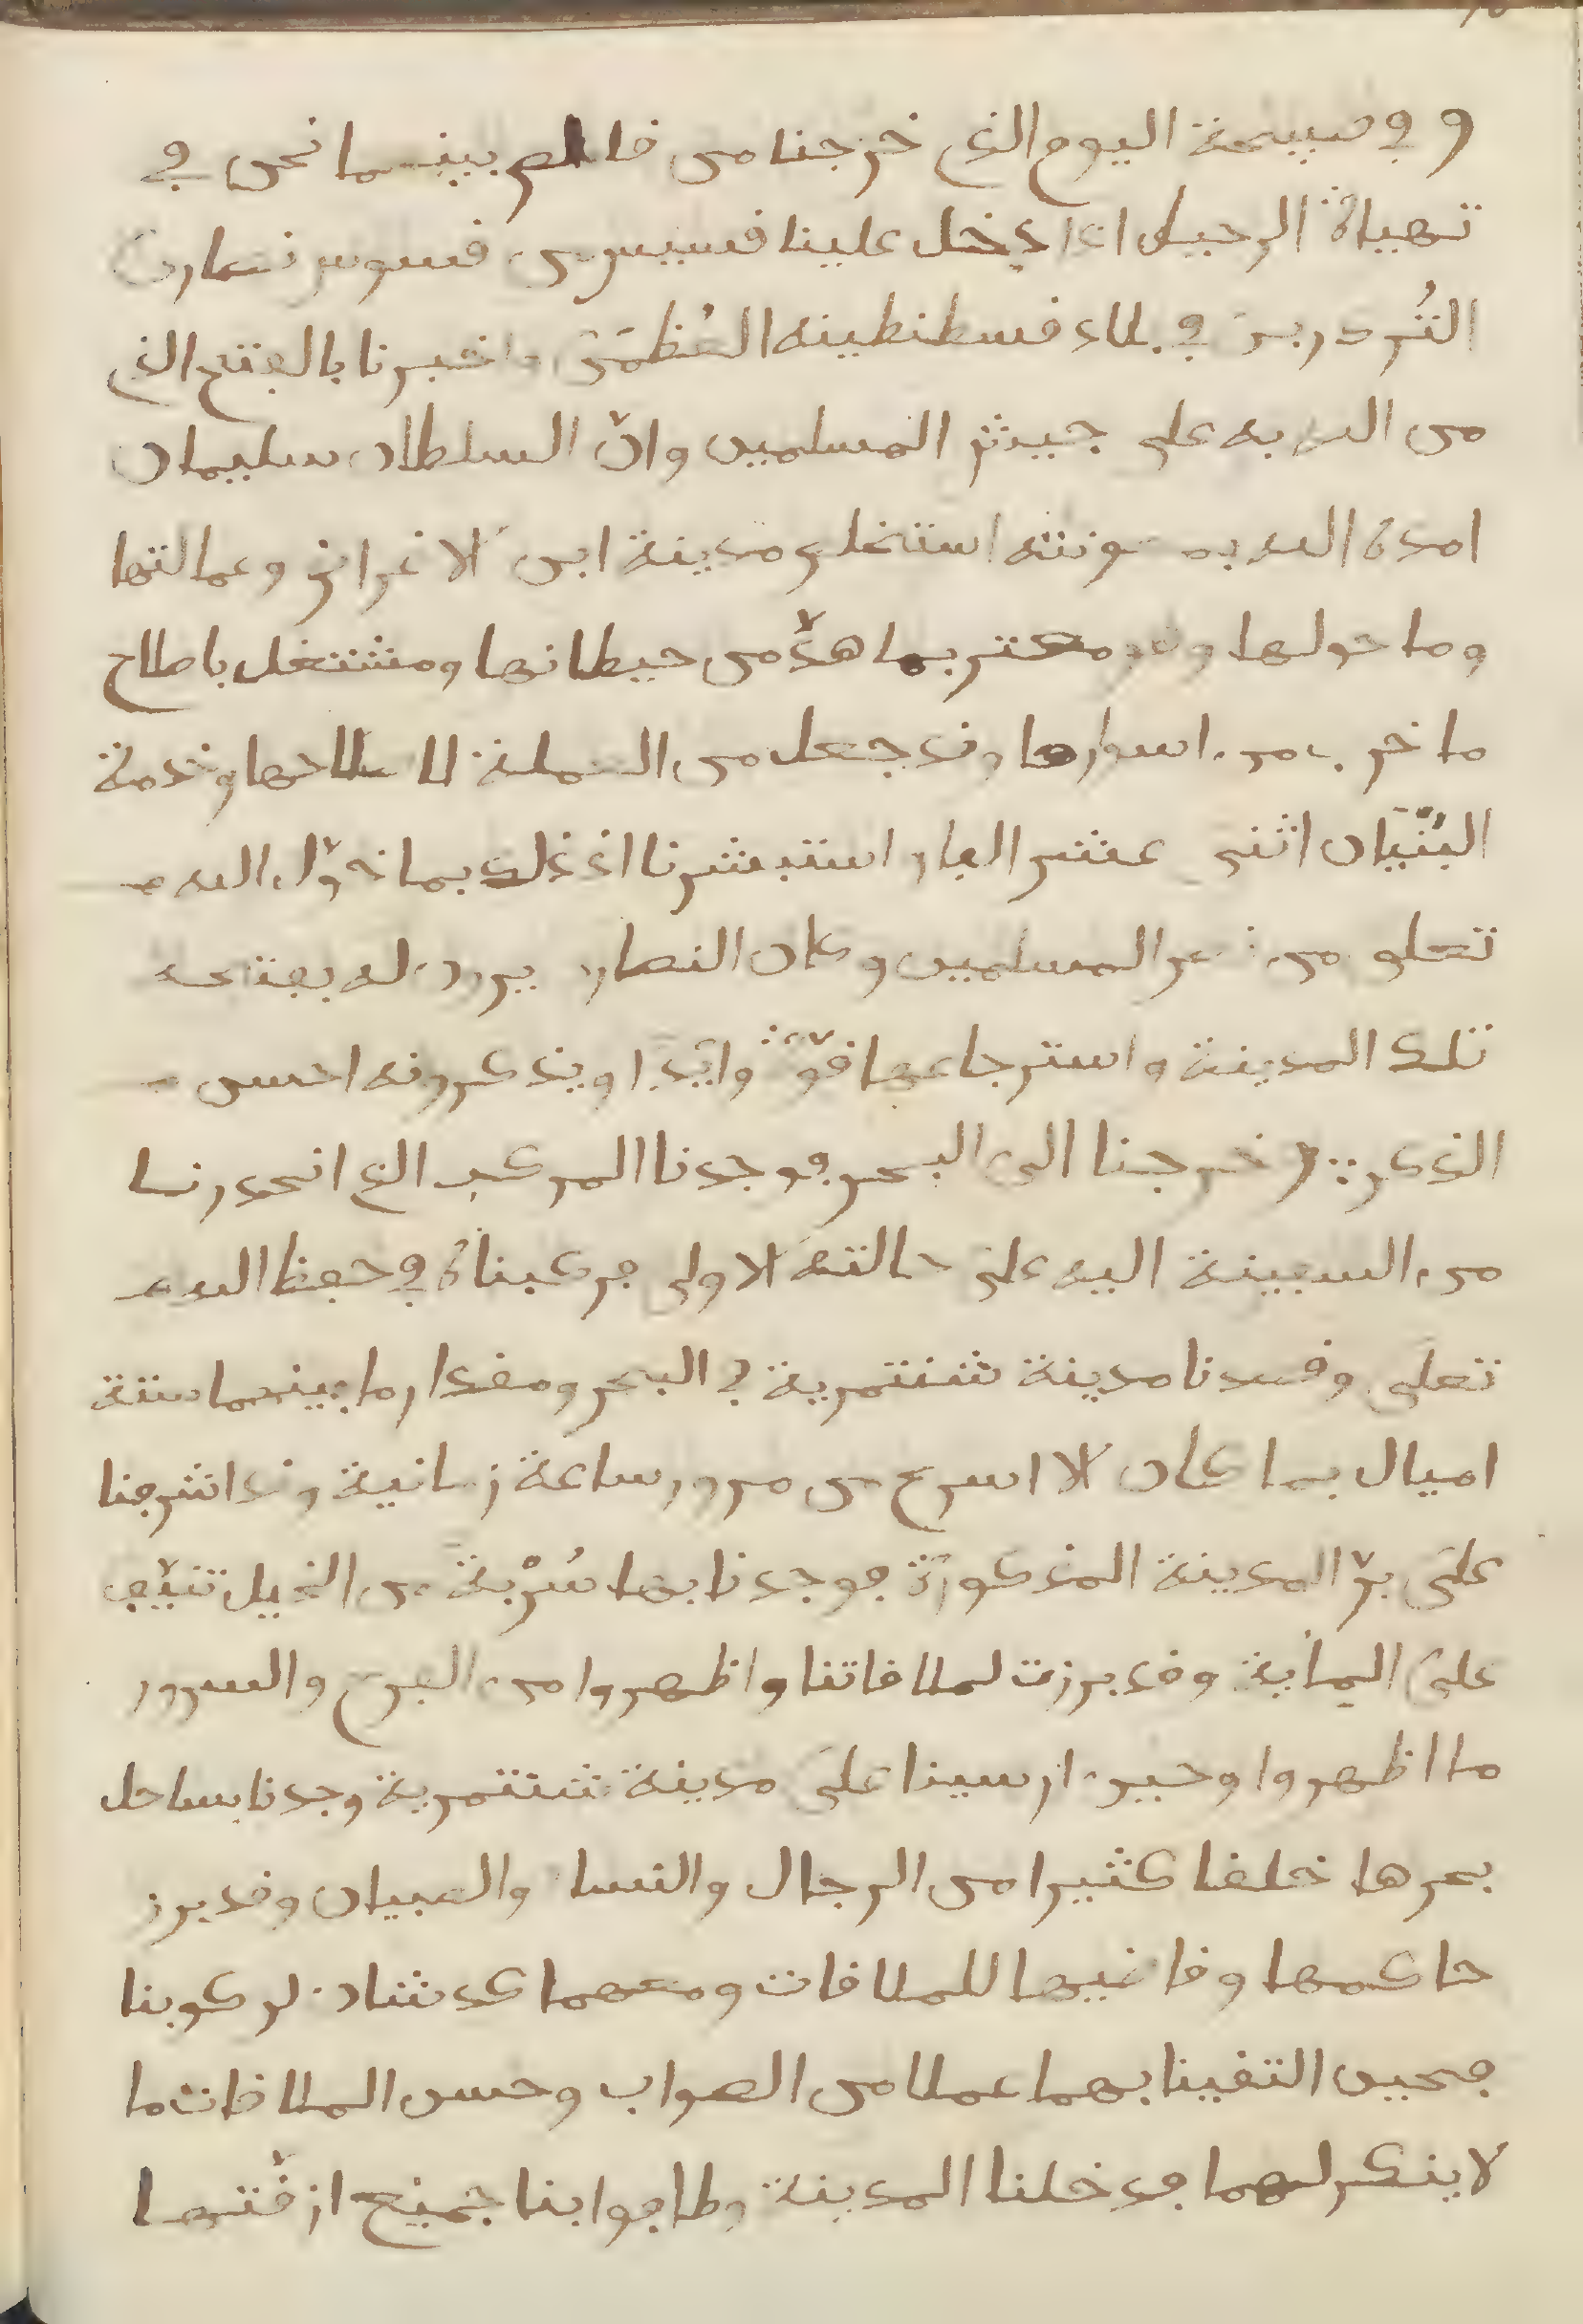 وفي صبيحة اليوم الذي خرجنا من قالص بينما نحن في
تهيأة الرحيل اذا دخل علينا قسيس من قسوس نصارى
التُرد دربن في بلاد قسطنطينه العُظمَى واخبرنا بالفتح الذي
من الله به على جيش المسلمين وانّ السلطان سليمان
امده الله بمعونته استخلص مدينة ابن الاغراض وعمالتها
وما حولها وهو معتن بما هدّ من حيطانها ومشتغل باصلاح
ما خرب من اسوارها وقد جعل من العملة لاصلاحها وخدمة
البُنْيَان اثنى عشر الفا واستبشرنا اذ ذلك بما خوّل الله
تعلى من نصر المسلمين وكان النصارى يرون له بفتحه
تلك المدينة واسترجاعها قوّة وايدا ويذكرونه احسن
الذكر :: خرجنا الى البحر فوجدنا المركب الذي انحدرنا
من السفينة اليه على حالته الاولى فركبناه في حفظ الله
تعلى وقصدنا مدينة شنتمرية في البحر ومقدار ما بينهما ستة
اميال فما كان الا اسرع من مرور ساعة زمانية وقد اشرفنا
على برّ المدينة المذكورة فوجدنا بها سُرْبة من الخيل تنيّف
على المأية وقد برزت لملاقاتنا واظهروا من الفرح والسرور
ما اظهروا وحين ارسينا على مدينة شنتمرية وجدنا بساحل
بحرها خلقا كثيرا من الرجال والنسا والصبيان وقد برز
حاكمها وقاضيها للملاقات ومعهما كدشان لركوبنا
فحين التقينا بهما عملا من الصواب وحسن الملاقات ما
لا ينكر لهما فدخلنا المدينة وطافوا بنا جميع ازقّتها